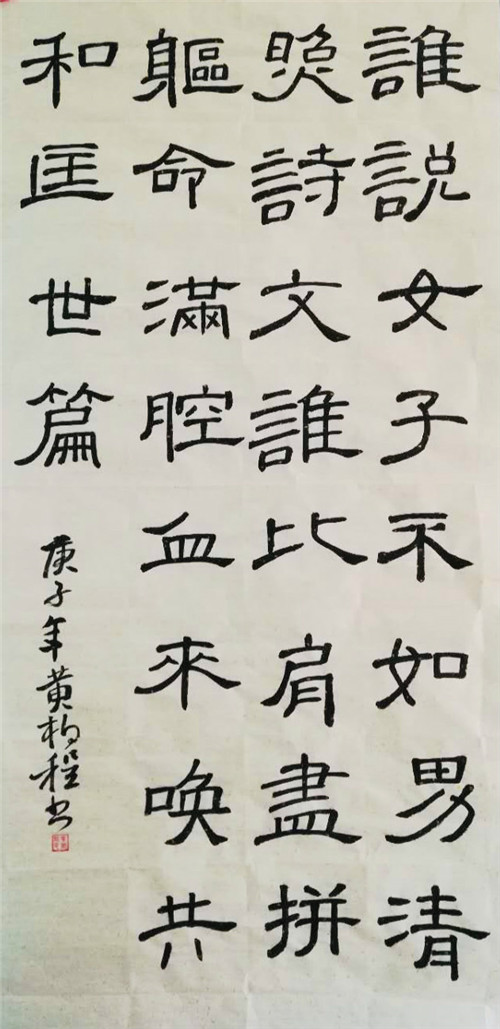 誰説女子不如男清
照詩文誰比肩盡拼
軀命滿腔血來喚共
和匡世篇
庚子年黄柏程书